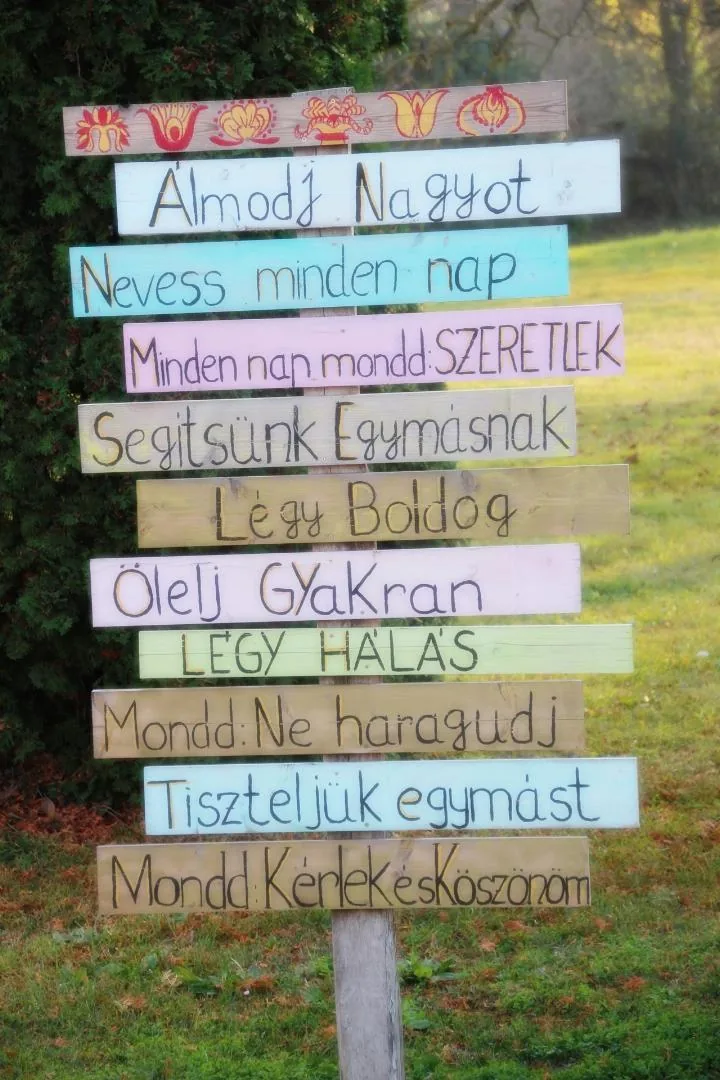 Álmodj Nagyot
Nevess minden nap
Minden nap mondd: SZERETLEK
Segitsünk Egymásnak
Légy Boldog
Ölelj GYaKran
LÉGY HÁLÁS
Mondd: Ne haragudj
Tiszteljük egymást
Mondd: KérleK és Köszönöm